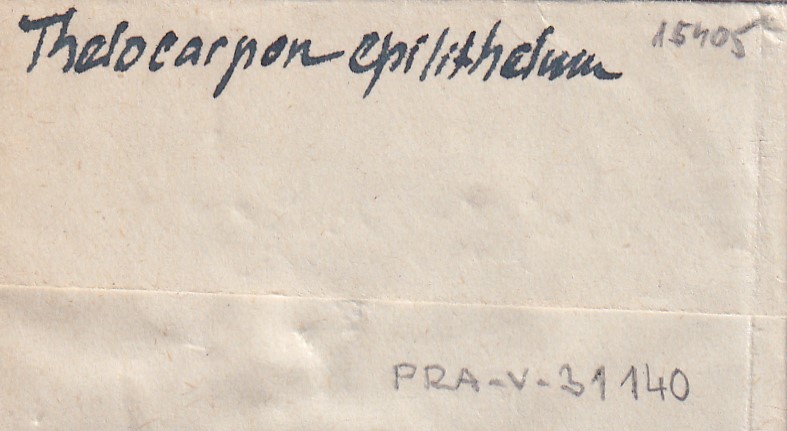 Thelocarpon epilithelum 15405
PRA-V-31140